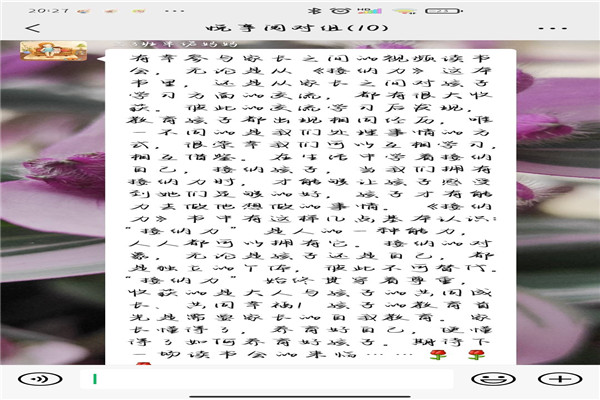 20:27
悦享阅对组(10)
有幸参与家长之间的视频读书
会，无论是从《接纳力》这本
书里，还是从家长之间对孩子
学习方面的交流，都有很大收
获。彼此的交流学习后发现，
教育孩子都出现相同经历，唯
一不同的是我们处理事情的方
式，很荣幸我们可以互相学习，
相互借鉴。在生活中学着接纳
自己，接纳孩子，当我们拥有
接纳力时，才能够让孩子感受
到她们足够的好，孩子才有能
力去做他想做的事情。《接纳
力》书中有这样几点基本认识：
“接纳力”是人的一种能力，
人人都可以拥有它。接纳的对
象，无论是孩子还是自己，都
是独立的个体，彼此不可替代。
“接纳力”始终贯穿着尊重，
收获的是大人与孩子的共同成
长、共同幸福！孩子的教育首
先是需要家长的自我教育。家
长懂得了，养育好自己，便懂
得了如何养育好孩子。期待下
一场读书会的来临……